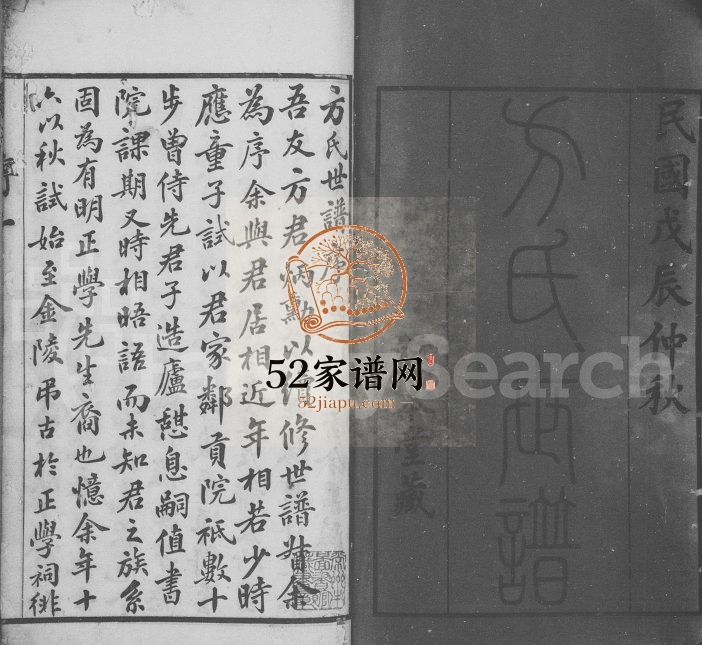 民國戊辰仲秋
方氏世譜
堂藏
方氏世譜序
吾友方君炳勳以修世譜余
為序余與君居相近年相若少時
應童子試以君家鄰貢院祗數十
步曾侍先君子造廬憇息嗣值書
院課期又時相晤語而未知君之族系
固為有明正學先生裔也憶余年十
六以秋試始至金陵弔古於正學祠徘
序
一
52家谱网
52jiapu.com
Search